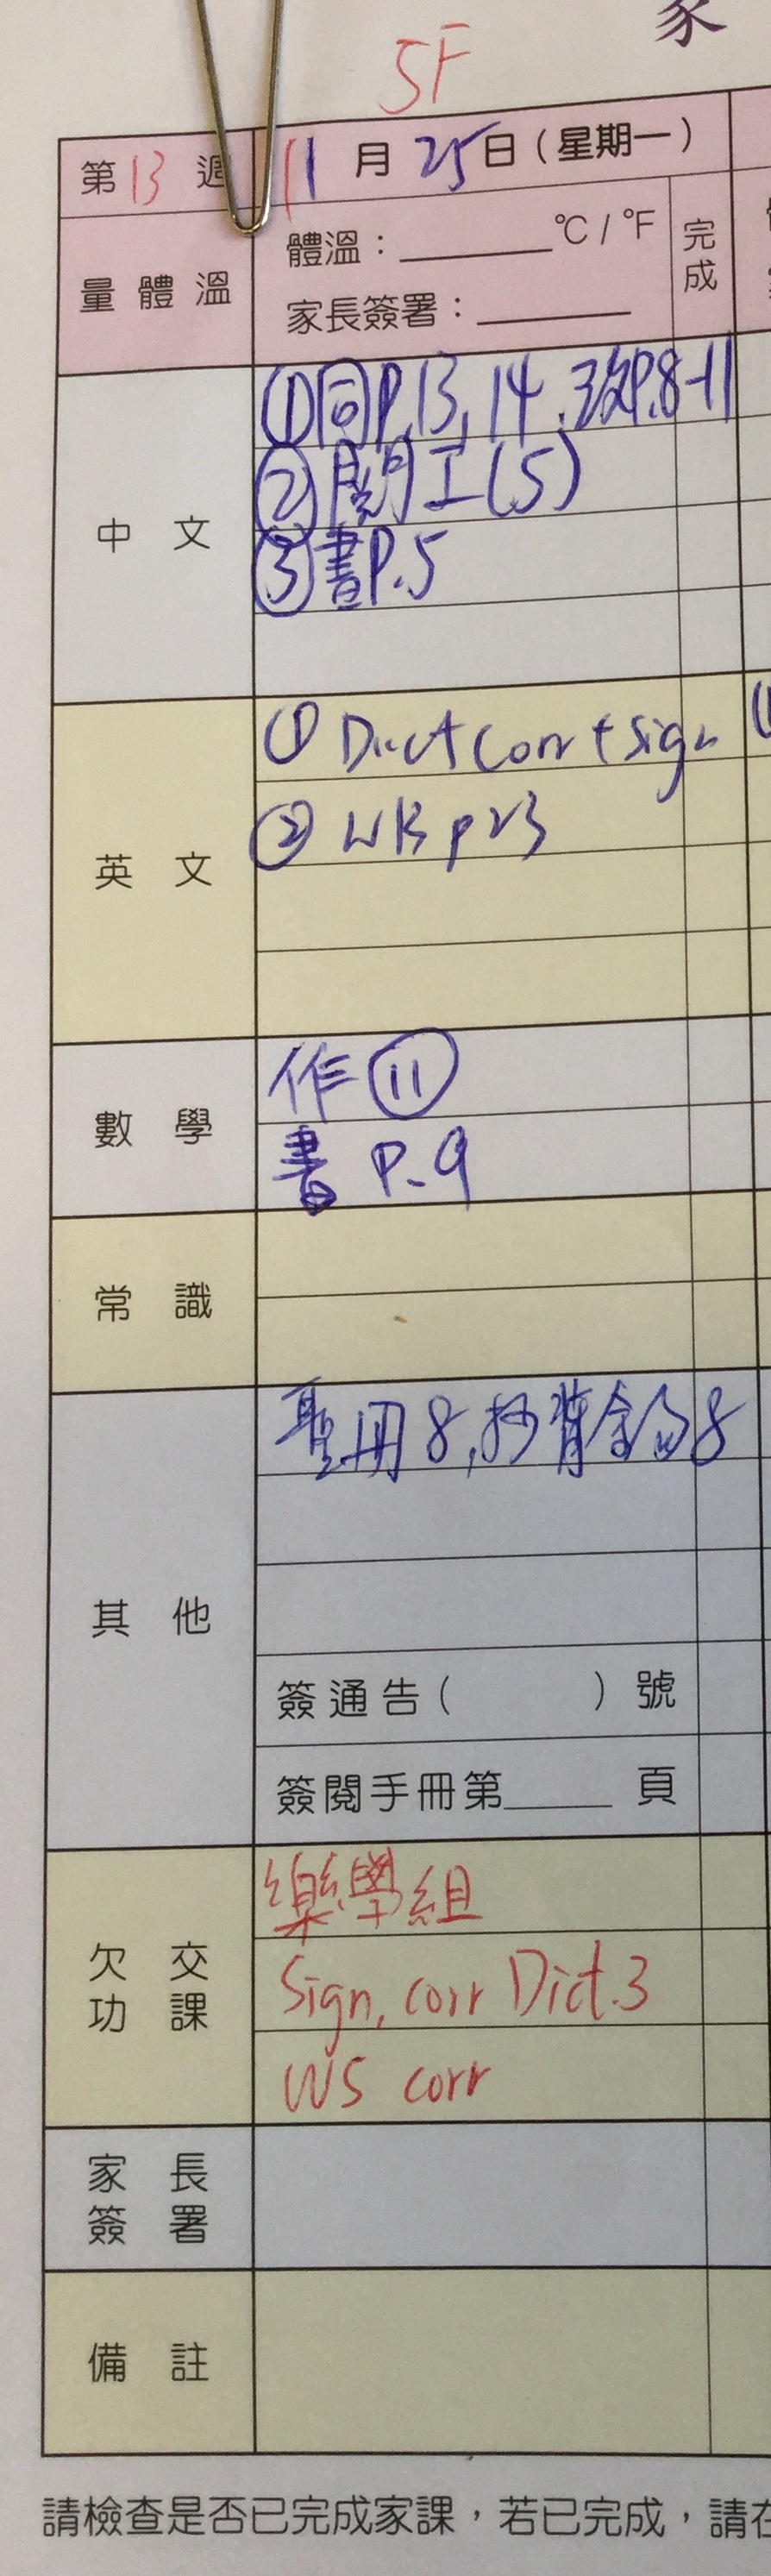 家
5F
第13週 11月25日(星期一)
量體溫
體溫:______°C / °F
家長簽署:______
完成
中文
①同P.13,14.功P.8-11
②閱工(5)
③書P.5
英文
① Dict Corr + Sign
② WB p23
數學
作⑪
書 P.9
常識
其他
聖冊8,抄背金句8
簽通告( )號
簽閱手冊第______頁
欠交功課
樂學組
Sign, corr Dict.3
WS corr
家長簽署
備註
請檢查是否已完成家課,若已完成,請在